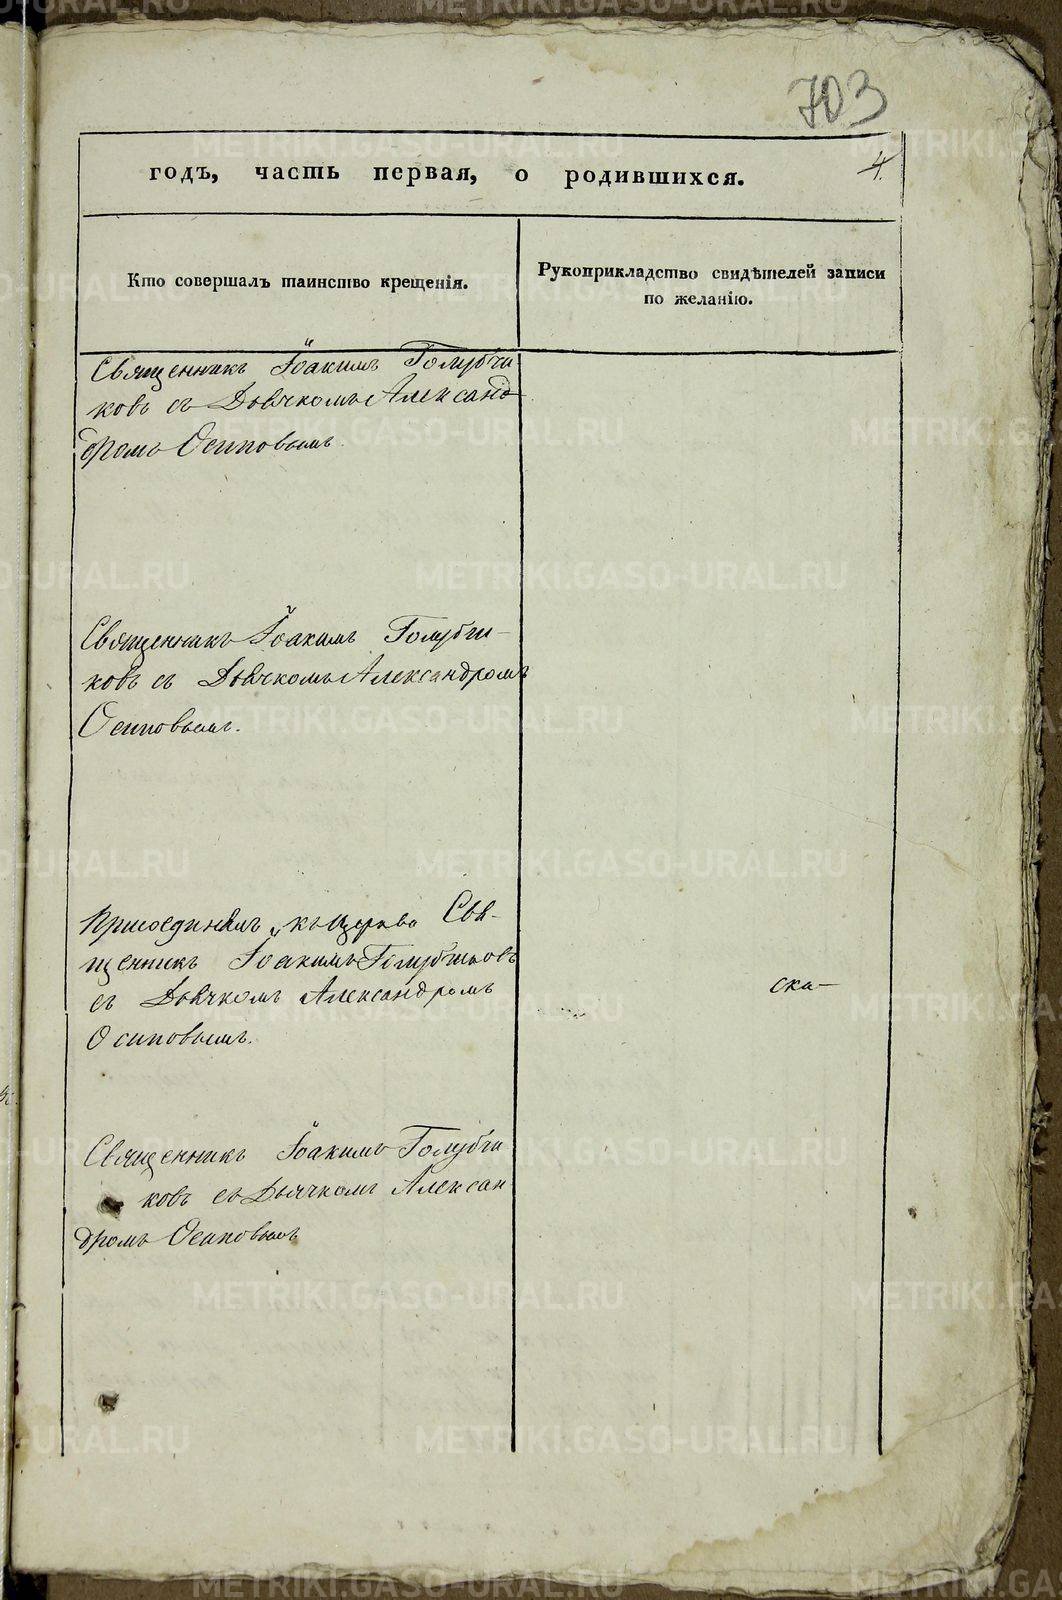 703
4.
годъ, часть первая, о родившихся.
Кто совершалъ таинство крещенія.
Рукоприкладство свидѣтелей записи
по желанію.
Священникъ Іоакимъ Голубчи
ковъ съ Дьячкомъ Александ
дромъ Осиповымъ.
Священникъ Іоакимъ Голубчи-
ковъ съ Дьячкомъ Александромъ
Осиповымъ.
Присоединялъ къ церкви Свя-
щенникъ Іоакимъ Голубчиковъ
съ Дьячкомъ Александромъ
Осиповымъ.
ска-
Священникъ Іоакимъ Голубчи
ковъ съ Дьячкомъ Алексан
дромъ Осиповымъ
METRIKI.GASO-URAL.RU